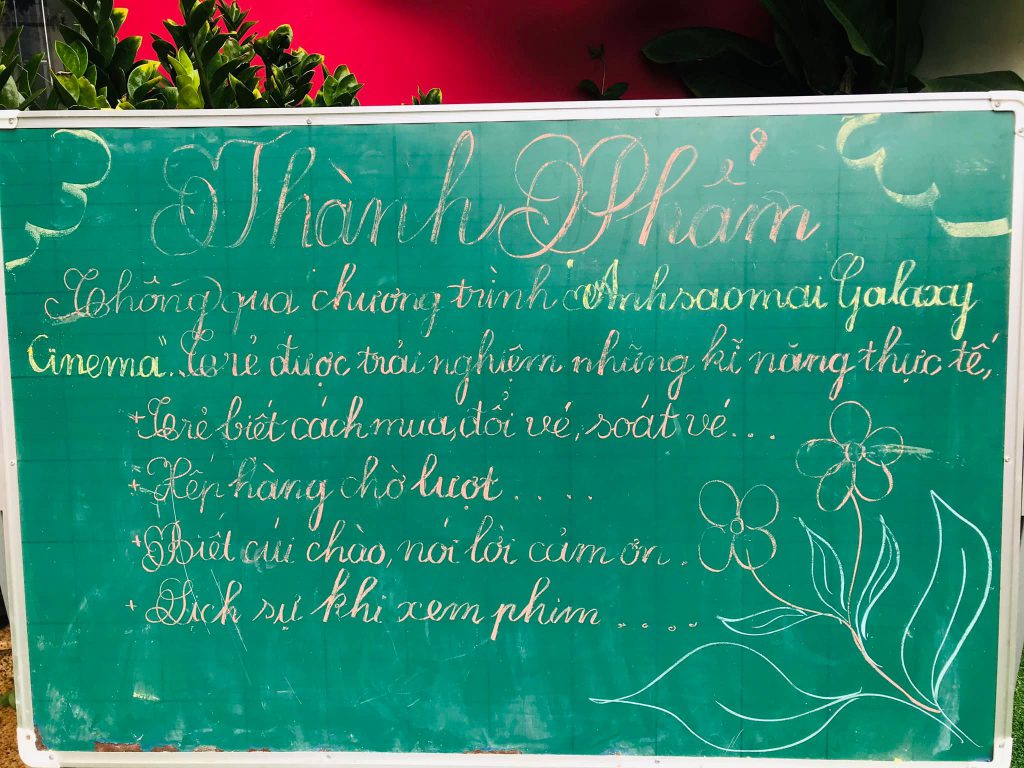 Thành Phẩm
Thông qua chương trình "Anhsaomai Galaxy
Cinema". Trẻ được trải nghiệm những kĩ năng thực tế,
+ Trẻ biết cách mua, đổi vé, soát vé...
+ Xếp hàng chờ lượt....
+ Biết cúi chào, nói lời cảm ơn.
+ Lịch sự khi xem phim.....